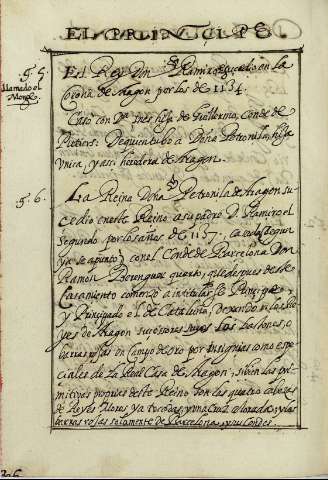 EL PRINCIPE.
§. 5.
llamado el
Monge
El Rey Don Ramiro sucedio en la
Corona de Aragon por los de 1134.
Caso con Dª Ines hija de Guillermo, Conde de
Putiers. De quien tubo a Doña Petronila, hija
Vnica, y assi heredera de Aragon.
§. 6.
La Reina Doña Petronila de Aragon su-
cedio en este Reino a su padre D. Ramiro el
Segundo por los años de 1137. casola, segun
ya se apunto, con el Conde de Barcelona Don
Ramon Berenguer quarto; que despues deste
Casamiento comenzo a intitularse Principe,
y Principado el de Cataluña, de
Aragon sucesores suyos los bastones, o
barras rojas en campo de oro por insignias como espe-
ciales de la Real Casa de Aragon; si bien las pri-
mitivas propias deste Reino son las quatro cabezas
de Reyes Moros, y una Cruz
barras rojas solamente de Barcelona, y sus Condes.